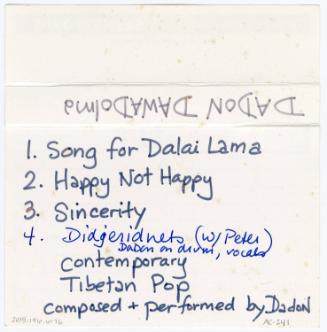 DADON DAWADOlma
1. Song for Dalai Lama
2. Happy Not Happy
3. Sincerity
4. Didgeridnets (w/ Peter)
Dadon on drum, vocals
contemporary
Tibetan Pop
composed + performed by Dadon